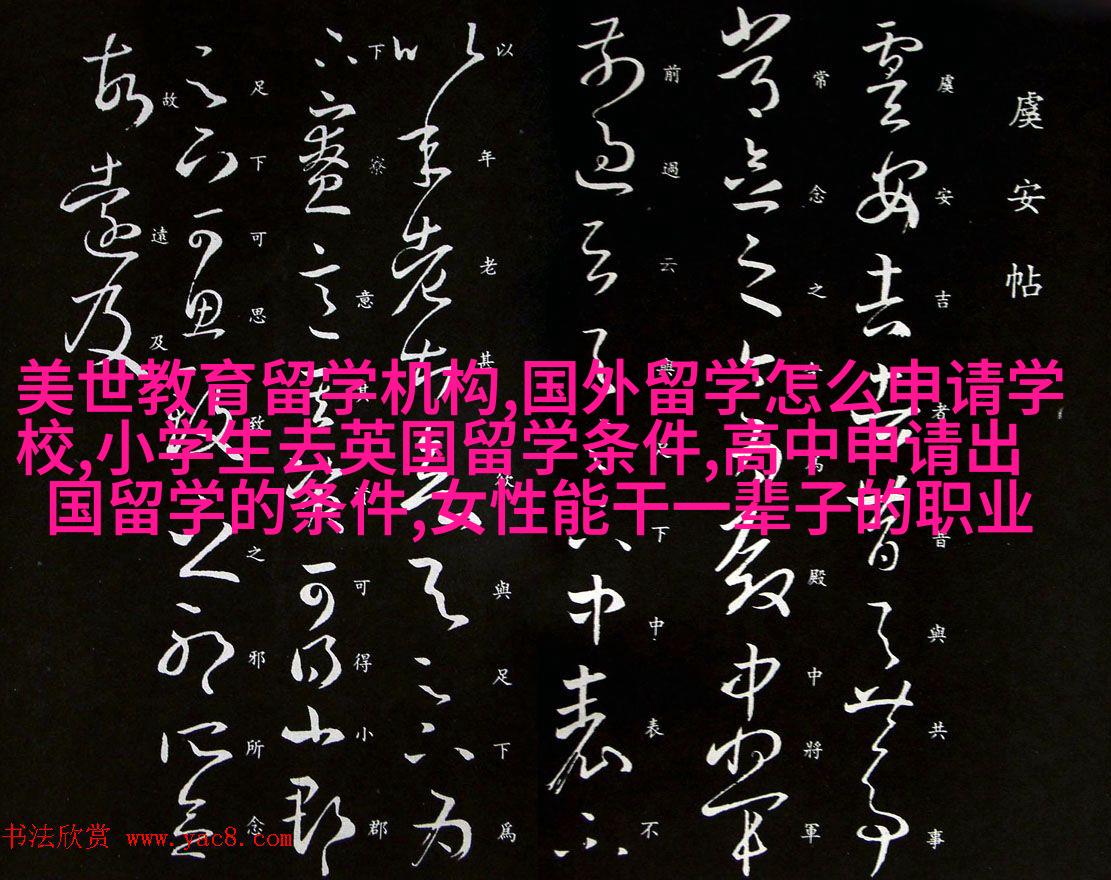 虞安帖
虞安吉者昔與共事
常念之今為殿中將軍
前過云與足下中表不
以年老甚欲與足下為
下寮意其資可得小郡
足下可思致之邪所念
故遠及
美世教育留学机构,国外留学怎么申请学
校,小学生去英国留学条件,高中申请出
国留学的条件,女性能干一辈子的职业
书法欣赏 www.yac8.com